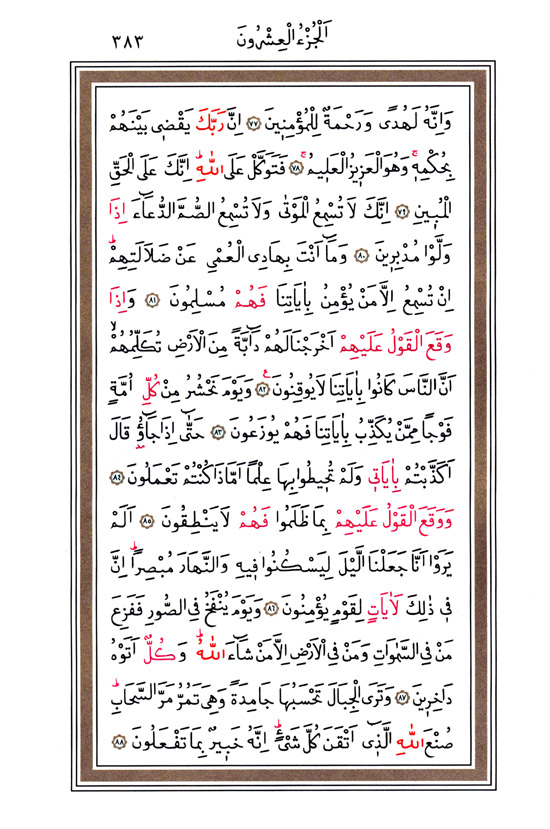 اَلْجُزْءُ الْعِشْرُونَ
٣٨٣
وَاِنَّهُ لَهُدًى وَرَحْمَةٌ لِلْمُؤْمِنٖينَ ﴿٧٧﴾ اِنَّ رَبَّكَ يَقْضٖى بَيْنَهُمْ
بِحُكْمِهٖۚ وَهُوَ الْعَزٖيزُ الْعَلٖيمُۚ ﴿٧٨﴾ فَتَوَكَّلْ عَلَى اللّٰهِؕ اِنَّكَ عَلَى الْحَقِّ
الْمُبٖينِ ﴿٧٩﴾ اِنَّكَ لَا تُسْمِعُ الْمَوْتٰى وَلَا تُسْمِعُ الصُّمَّ الدُّعَٓاءَ اِذَا
وَلَّوْا مُدْبِرٖينَ ﴿٨٠﴾ وَمَٓا اَنْتَ بِهَادِى الْعُمْىِ عَنْ ضَلَالَتِهِمْؕ
اِنْ تُسْمِعُ اِلَّا مَنْ يُؤْمِنُ بِاٰيَاتِنَا فَهُمْ مُسْلِمُونَ ﴿٨١﴾ وَاِذَا
وَقَعَ الْقَوْلُ عَلَيْهِمْ اَخْرَجْنَا لَهُمْ دَٓابَّةً مِنَ الْاَرْضِ تُكَلِّمُهُمْۙ
اَنَّ النَّاسَ كَانُوا بِاٰيَاتِنَا لَا يُوقِنُونَࣖ ﴿٨٢﴾ وَيَوْمَ نَحْشُرُ مِنْ كُلِّ اُمَّةٍ
فَوْجًا مِمَّنْ يُكَذِّبُ بِاٰيَاتِنَا فَهُمْ يُوزَعُونَ ﴿٨٣﴾ حَتّٰٓى اِذَا جَٓاؤُ۫ قَالَ
اَكَذَّبْتُمْ بِاٰيَاتٖى وَلَمْ تُحٖيطُوا بِهَا عِلْمًا اَمَّا ذَا كُنْتُمْ تَعْمَلُونَ ﴿٨٤﴾
وَوَقَعَ الْقَوْلُ عَلَيْهِمْ بِمَا ظَلَمُوا فَهُمْ لَا يَنْطِقُونَ ﴿٨٥﴾ اَلَمْ
يَرَوْا اَنَّا جَعَلْنَا الَّيْلَ لِيَسْكُنُوا فٖيهِ وَالنَّهَارَ مُبْصِرًاؕ اِنَّ
فٖى ذٰلِكَ لَاٰيَاتٍ لِقَوْمٍ يُؤْمِنُونَ ﴿٨٦﴾ وَيَوْمَ يُنْفَخُ فِى الصُّورِ فَفَزِعَ
مَنْ فِى السَّمٰوَاتِ وَمَنْ فِى الْاَرْضِ اِلَّا مَنْ شَٓاءَ اللّٰهُؕ وَكُلٌّ اَتَوْهُ
دَاخِرٖينَ ﴿٨٧﴾ وَتَرَى الْجِبَالَ تَحْسَبُهَا جَامِدَةً وَهِىَ تَمُرُّ مَرَّ السَّحَابِؕ
صُنْعَ اللّٰهِ الَّذٖٓى اَتْقَنَ كُلَّ شَىْءٍؕ اِنَّهُ خَبٖيرٌ بِمَا تَفْعَلُونَ ﴿٨٨﴾